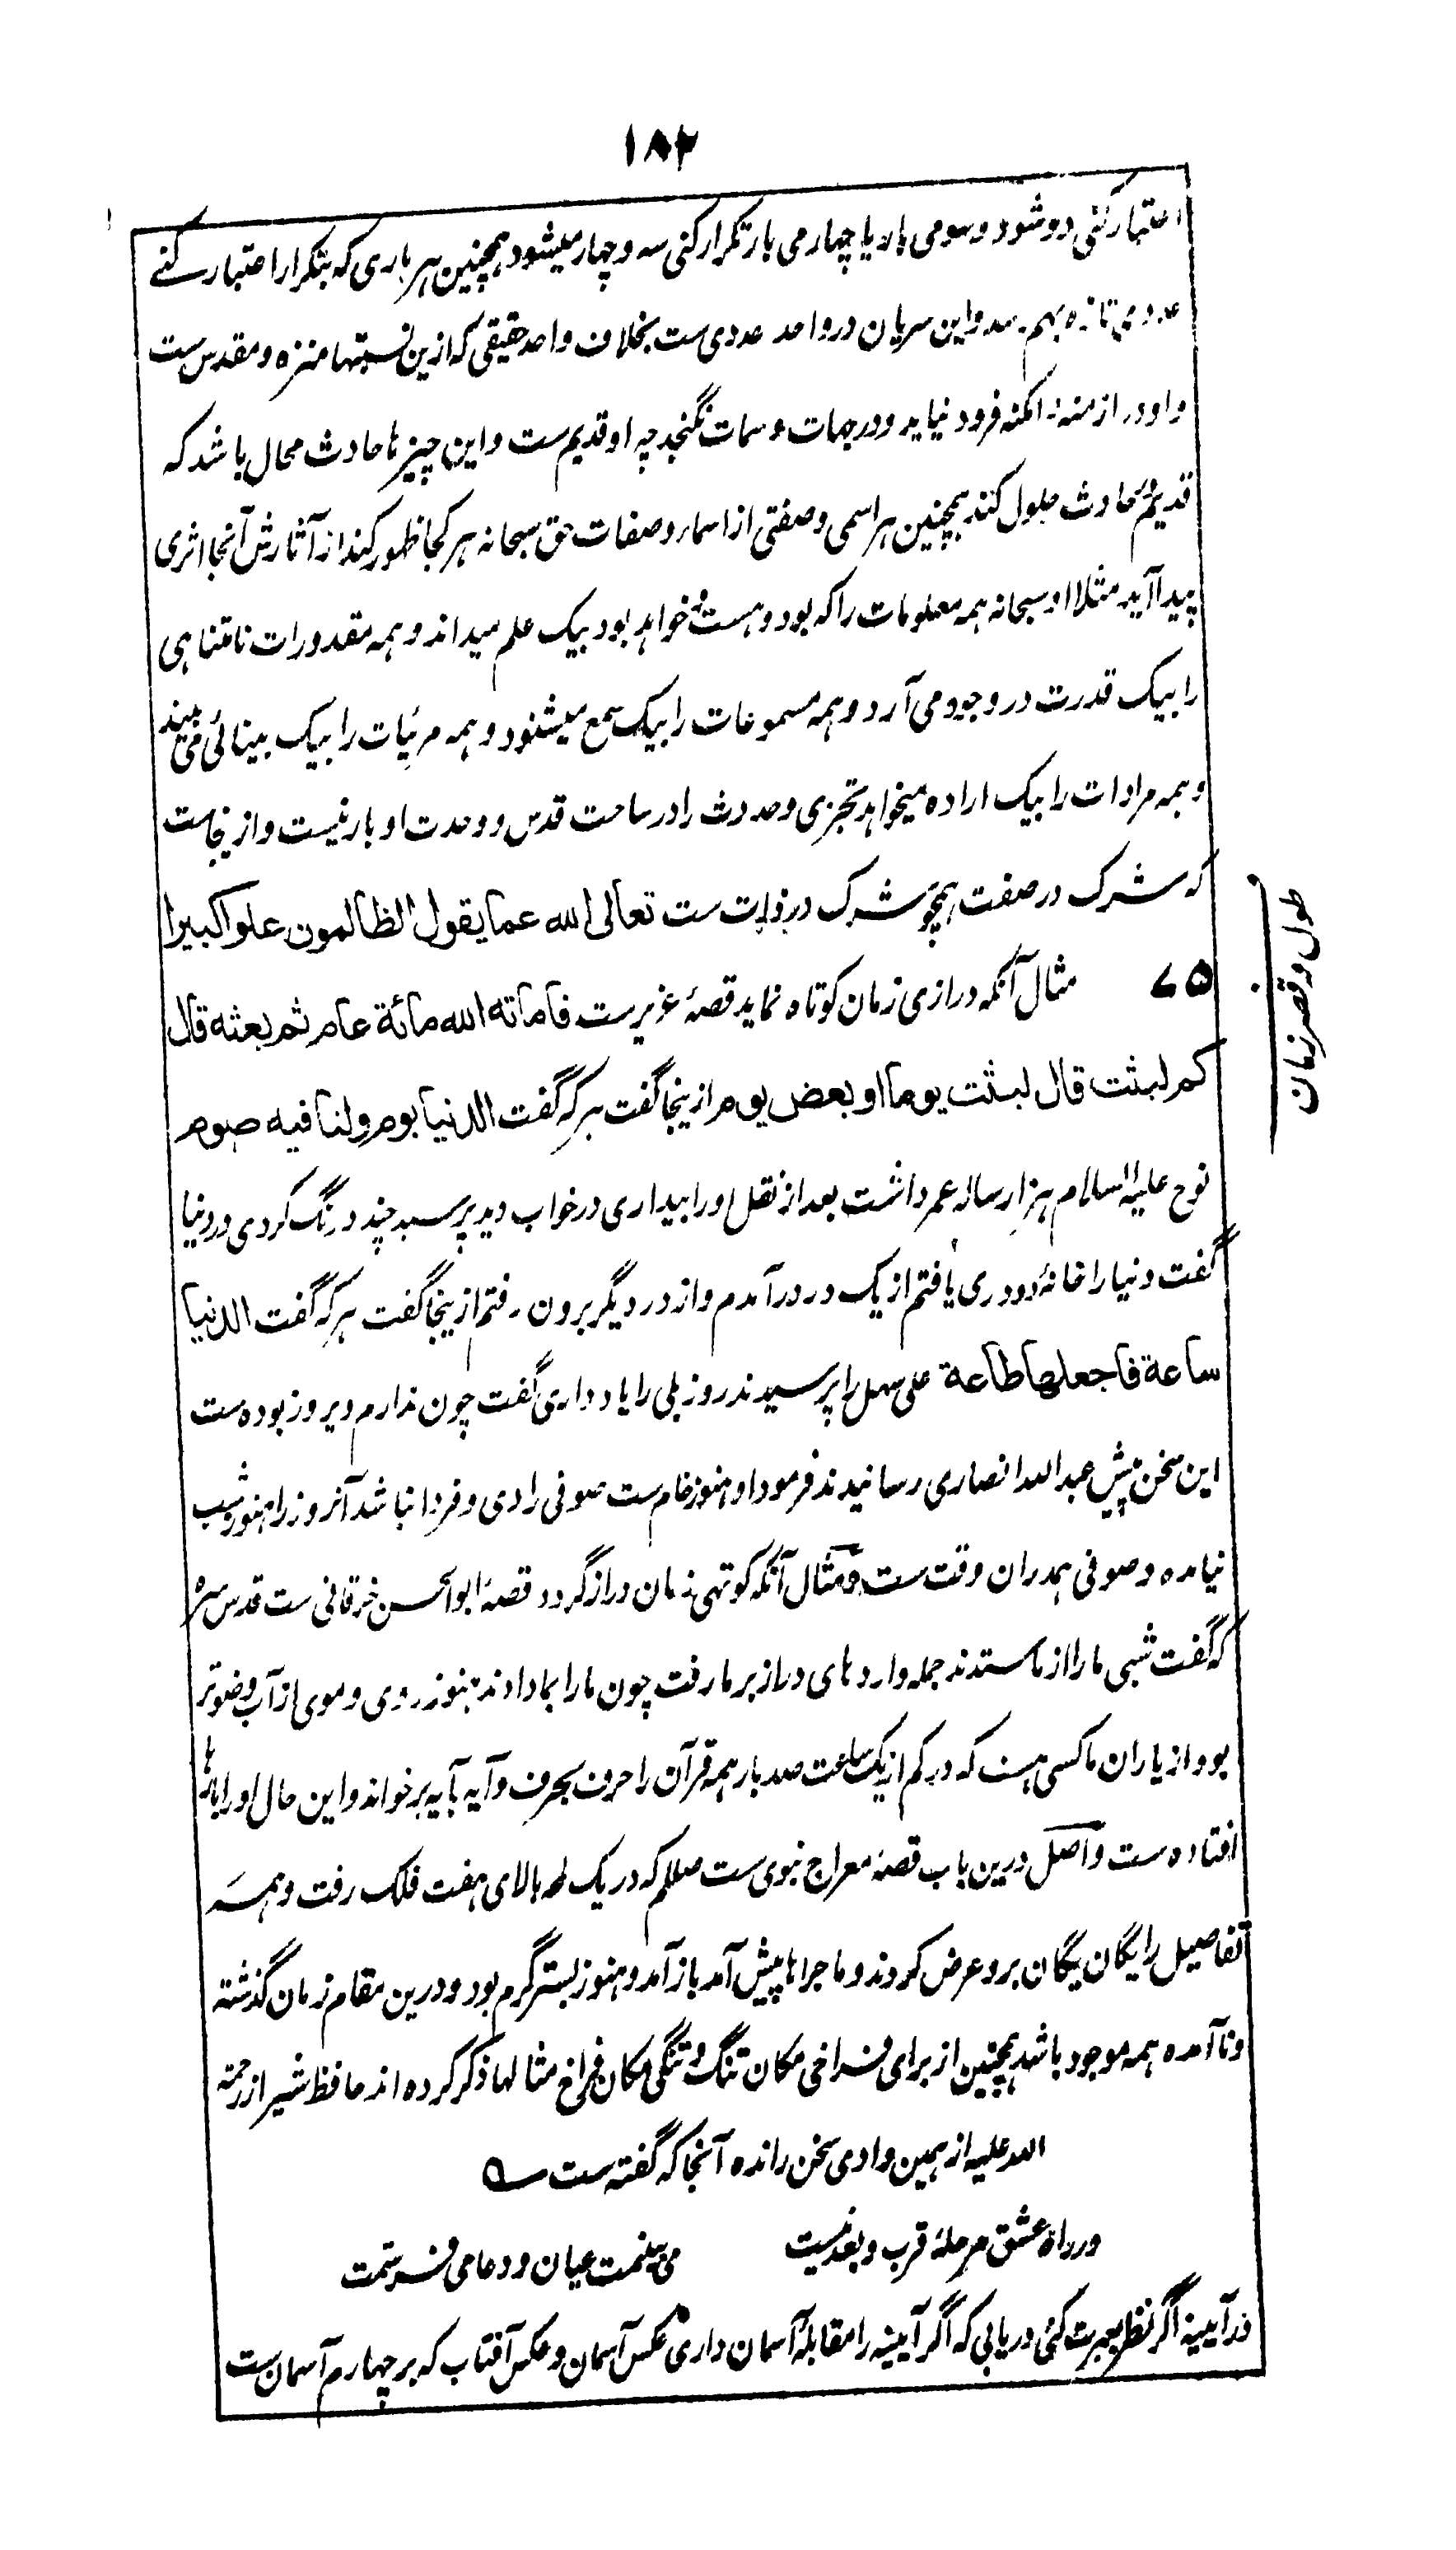 ۱۸۲
اعتبار کنی دو شود و سومی بار یا چهارمی بار تکرار کنی سه و چهار میشود همچنین هر باری که بتکرار اعتبار کنے
عددی تازه بهم رسد و این سریان در واحد عددی ست بخلاف واحد حقیقی که ازین نسبتها منزه و مقدس ست
و او در ازمنه و امکنه فرود نیاید و در جهات و سمات نگنجد چه او قدیم ست و این چیزها حادث محال باشد که
قدیم در حادث حلول کند همچنین هر اسمی و صفتی از اسماء و صفات حق سبحانه هر کجا ظهور کند از آثارش آنجا اثری
پیدا آید مثلا او سبحانه همه معلومات را که بود و هست و خواهد بود بیک علم میداند و همه مقدورات نامتناهی
را بیک قدرت در وجود می آرد و همه مسموعات را بیک سمع میشنود و همه مرئیات را بیک بینائی می بیند
و همه مرادات را بیک اراده میخواهد تجزی و حدوث را در ساحت قدس و وحدت او بار نیست و ازینجاست
که شرک در صفت همچو شرک در ذات ست تعالی الله عما یقول الظالمون علوا کبیرا
۷۵ مثال آنکه درازی زمان کوتاه نماید قصهٔ عزیرست فاماته الله مائة عام ثم بعثه قال
کم لبثت قال لبثت یوما او بعض یوم ازینجا گفت هر که گفت الدنیا یوم ولنا فیه صوم
نوح علیه السلام هزار ساله عمر داشت بعد از نقل او را بیداری در خواب دید پرسید چند درنگ کردی در دنیا
گفت دنیا را خانهٔ دودری یافتم از یک در درآمدم و از در دیگر برون رفتم ازینجا گفت هر که گفت الدنیا
ساعة فاجعلها طاعة علی سهل را پرسیدند روز بلی را یاد داری گفت چون ندارم دیروز بوده ست
این سخن پیش عبدالله انصاری رسانیدند فرمود او هنوز خام ست صوفی را دی و فردا نباشد آنروز را هنوز شب
نیامده و صوفی همدران وقت ست و مثال آنکه کوتهی زمان دراز گردد قصهٔ ابوالحسن خرقانی ست قدس سره
که گفت شبی ما را از ما ستدند جمله واردهای دراز بر ما رفت چون ما را بما دادند هنوز روی و موی از آب وضو تر
بود و از یاران ما کسی هست که در کم از یک ساعت صد بار همه قرآن را حرف بحرف و آیه بآیه برخواند و این حال او را بارها
افتاده ست و اصل درین باب قصهٔ معراج نبوی ست صللم که در یک لمحه بالای هفت فلک رفت و همه
تفاصیل را یگان یگان برو عرض کردند و ماجراها پیش آمد باز آمد و هنوز بستر گرم بود و درین مقام زمان گذشته
و ناآمده همه موجود باشد همچنین از برای فراخی مکان تنگ و تنگی مکان فراخ مثالها ذکر کرده اند حافظ شیراز رحمة
الله علیه از همین وادی سخن رانده آنجا که گفته ست
در راه عشق مرحلهٔ قرب و بعد نیست می بینمت عیان و دعا می فرستمت
در آیینه اگر نظر بعبرت کنی دریابی که اگر آیینه را مقابلهٔ آسمان داری عکس آسمان و عکس آفتاب که بر چهارم آسمان ست
طول و قصر زمان